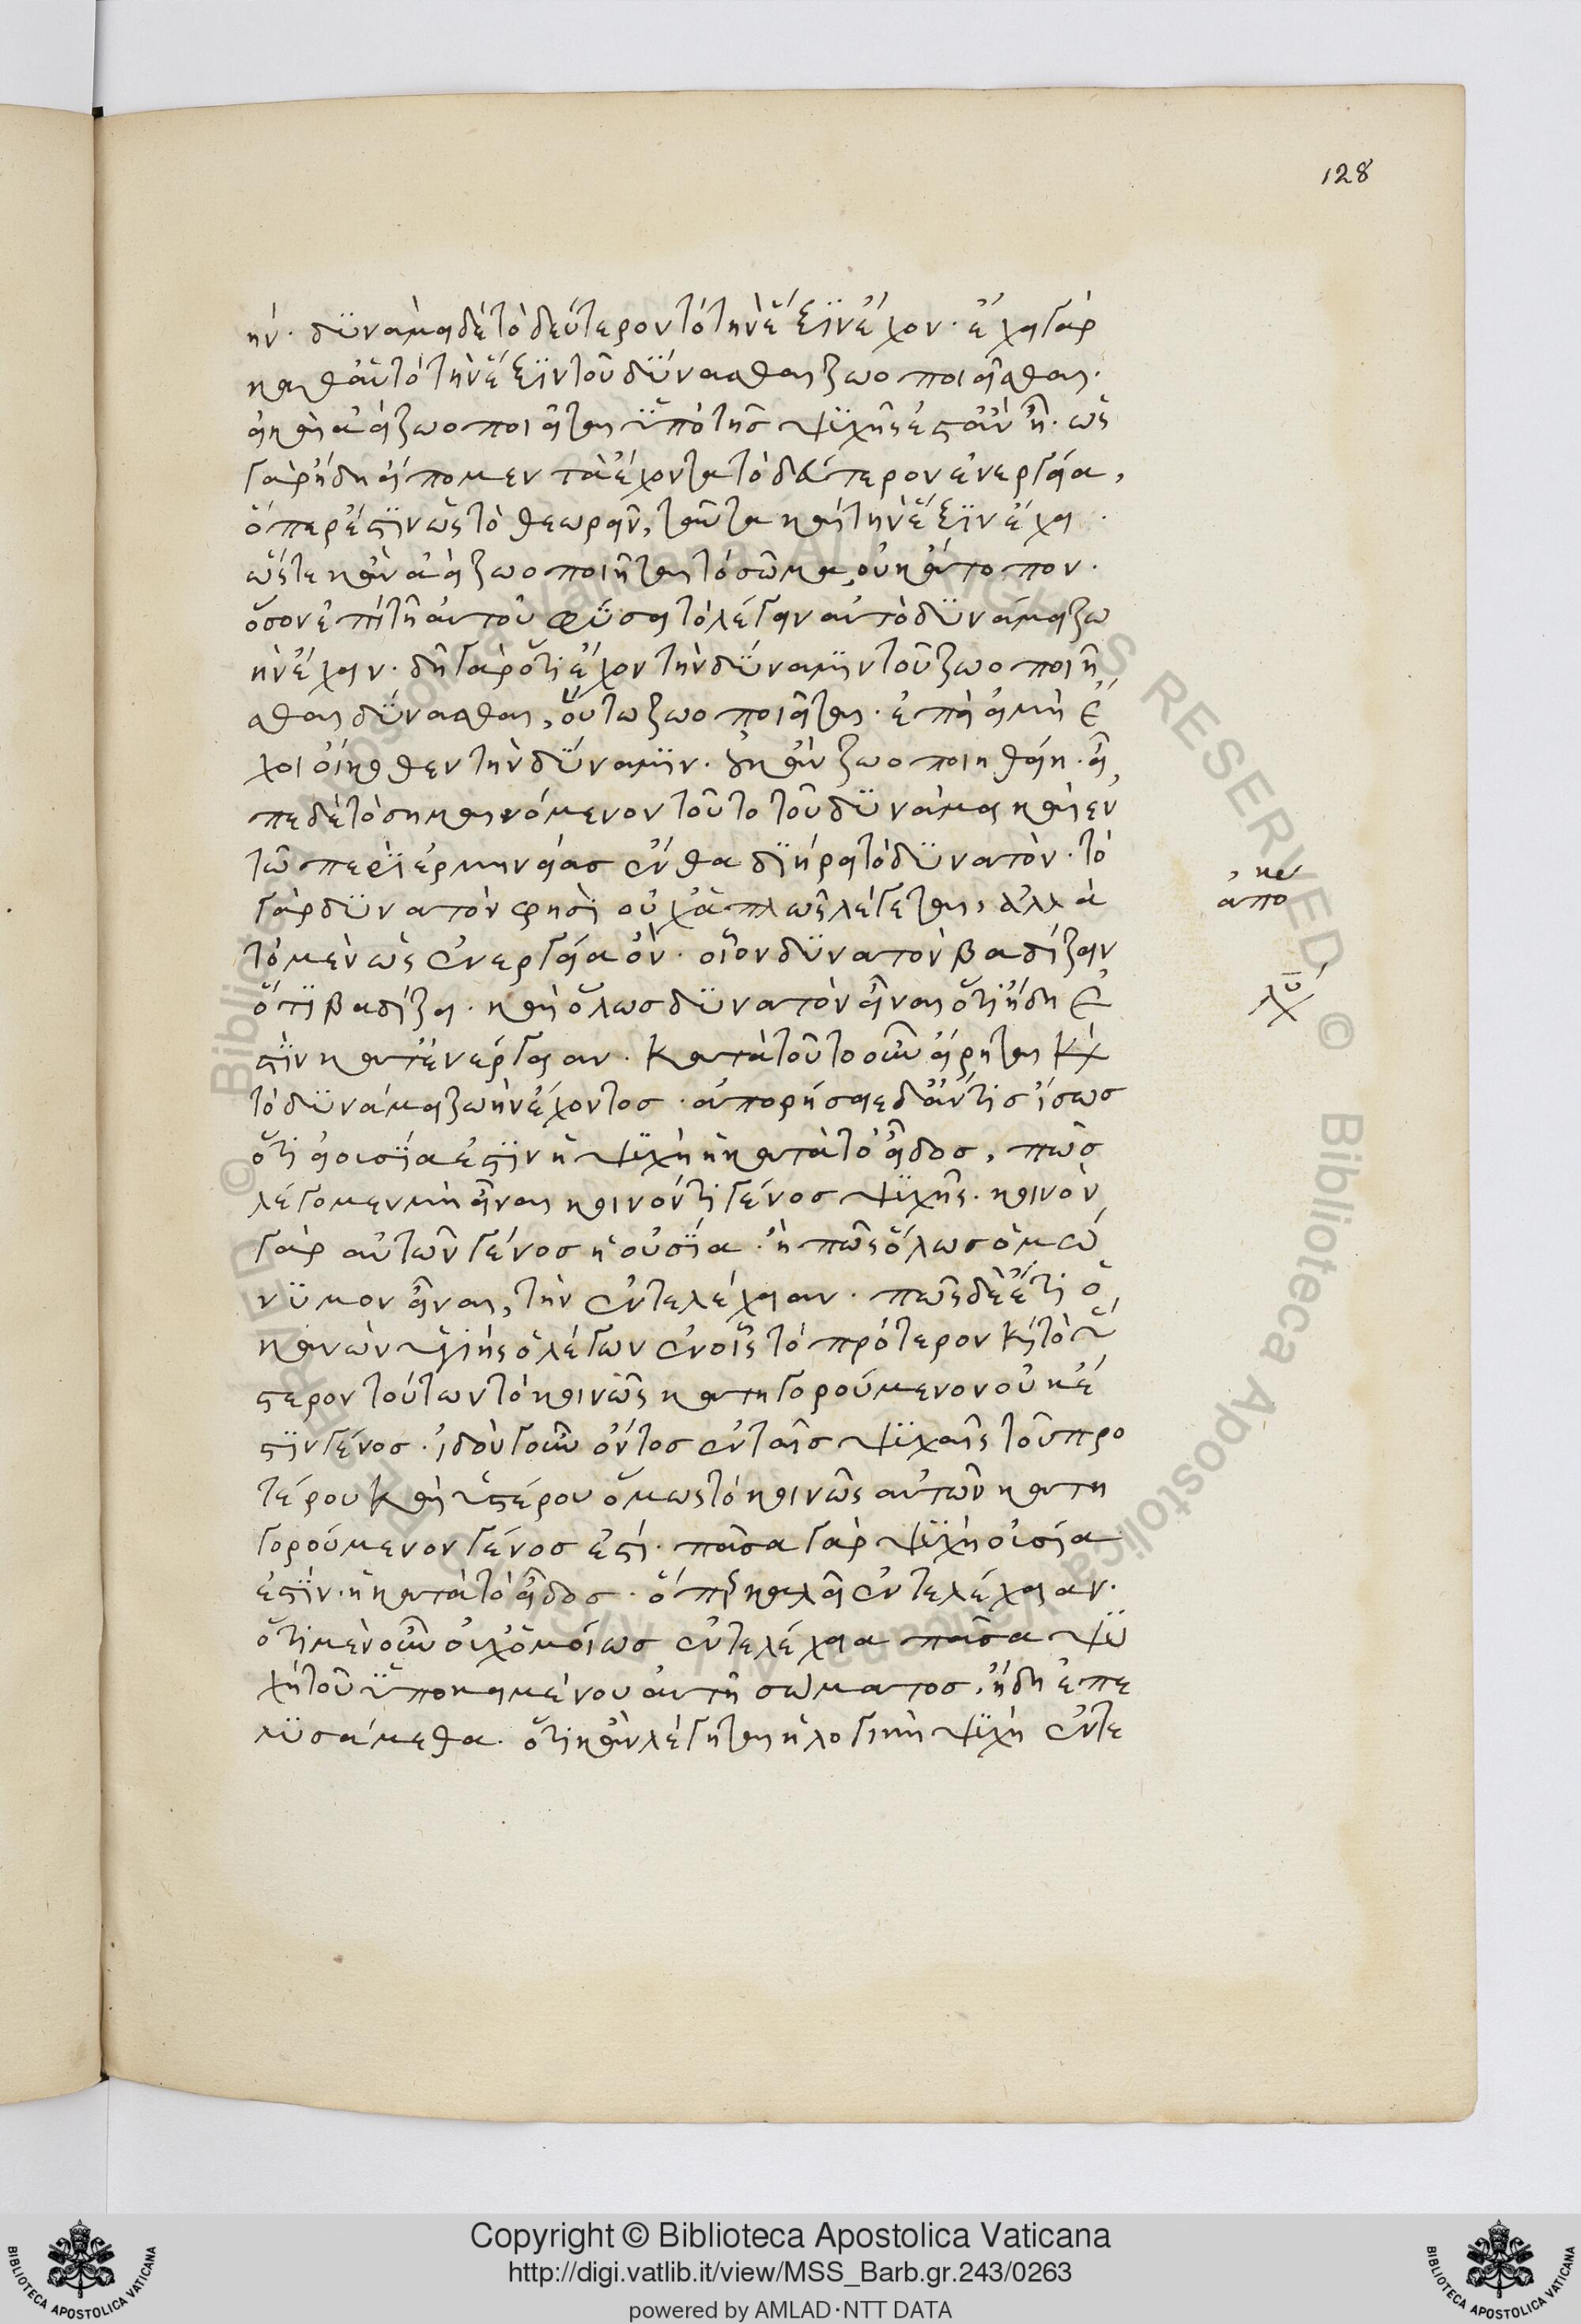 128
ήν. δυνάμει δὲ τὸ δεύτερον τὸ τὴν ἕξιν ἔχον. ἔχει γὰρ
καθ' αὑτὸ τὴν ἕξιν τοῦ δύνασθαι ζωοποιεῖσθαι.
εἰ καὶ ἀεὶ ζωοποιεῖται ὑπὸ τῆς ψυχῆς ἔστ' ἂν ᾖ. ὡς
γὰρ ἤδη εἴπομεν τὰ ἔχοντα τὸ δεύτερον ἐνεργείᾳ,
ὅπερ ἐστὶν ὡς τὸ θεωρεῖν, ταῦτα καὶ τὴν ἕξιν ἔχει.
ὥστε κἂν ἀεὶ ζωοποιῆται τὸ σῶμα, οὐκ ἄτοπον.
ὅσον ἐπὶ τῇ αὐτοῦ φύσει τὸ λέγειν αὐτὸ δυνάμει ζω
ὴν ἔχειν. δῆ γὰρ ὅτι ἔχον τὴν δύναμιν τοῦ ζωοποιεῖ
σθαι δύνασθαι, οὕτω ζωοποιεῖται. ἐπεὶ εἰ μὴ ἔ
χοι οἴκοθεν τὴν δύναμιν. οὐκ ἂν ζωοποιηθείη. εἶ
πε δὲ τὸ σημαινόμενον τοῦτο τοῦ δυνάμει καὶ ἐν
τῷ περὶ ἑρμηνείας ἔνθα διῄρει τὸ δυνατόν. τὸ
γὰρ δυνατόν φησὶ οὐχ ἁπλῶς λέγεται, ἀλλὰ
τὸ μὲν ὡς ἐνεργείᾳ ὄν. οἷον δυνατὸν βαδίζειν
ὅτι βαδίζει. καὶ ὅλως δυνατὸν εἶναι ὅτι ἤδη ἔ
στιν κατ' ἐνέργειαν. κατὰ τοῦτο οὖν εἴρηται κὶ
τὸ δυνάμει ζωὴν ἔχοντος. ἀπορήσαιε δ' ἄν τις ἴσως
ὅτι εἰ οὐσία ἐστὶν ἡ ψυχὴ ἡ κατὰ τὸ εἶδος, πῶς
λέγομεν μὴ εἶναι κοινόν τι γένος ψυχῆς. κοινὸν
γὰρ αὐτῶν γένος ἡ οὐσία. ἢ πῶς ὅλως ὁμώ
νυμον εἶναι, τὴν ἐντελέχειαν. πῶς δὲ ἔτι ὁ
κανὼν ὑγιὴς ὁ λέγων ἐν οἷς τὸ πρότερον κὶ τὸ ὕ
στερον τούτων τὸ κοινῶς κατηγορούμενον οὐκ ἔ
στιν γένος. ἰδοὺ γοῦν ὄντος ἐν ταῖς ψυχαῖς τοῦ προ
τέρου καὶ ὑστέρου ὅμως τὸ κοινῶς αὐτῶν κατη
γορούμενον γένος ἐστί. πᾶσα γὰρ ψυχὴ οὐσία
ἐστὶν ἡ κατὰ τὸ εἶδος. ὅπερ καλεῖ ἐντελέχειαν.
ὅτι μὲν οὖν οὐχ ὁμοίως ἐντελέχεια πᾶσα ψυ
χὴ τοῦ ὑποκειμένου αὐτῇ σώματος, ἤδη ἐπε
λυσάμεθα. ὅτι κἂν λέγηται ἡ λογικὴ ψυχὴ ἐντε
ἀπο